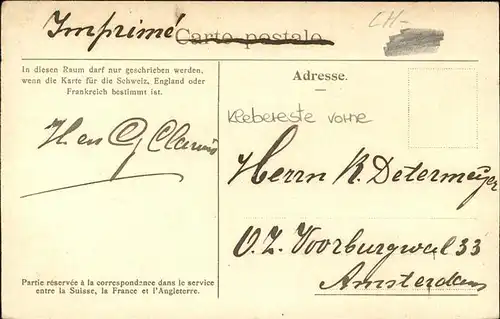 Imprimé Carte postale
CH-
In diesen Raum darf nur geschrieben werden,
wenn die Karte für die Schweiz, England oder
Frankreich bestimmt ist.
Adresse.
Klebereste vorne
H. en
Herrn K. Determeyer
O.Z. Voorburgwal 33
Amsterdam
Partie réservée à la correspondance dans le service
entre la Suisse, la France et l'Angleterre.